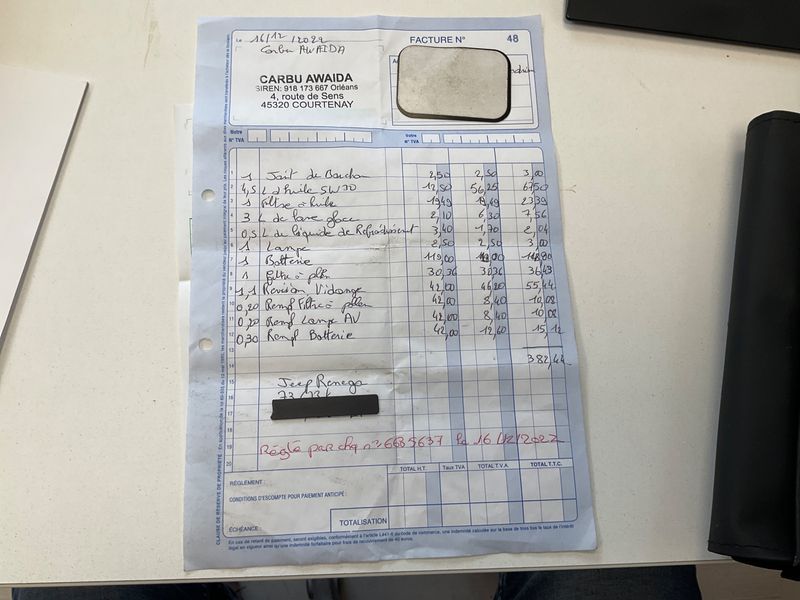 Le 16/12/2022
Carbu AWAIDA
FACTURE N° 48
CARBU AWAIDA
SIREN: 918 173 667 Orléans
4, route de Sens
45320 COURTENAY
Votre N° TVA
Notre N° TVA
1 1 Joint de Bouchon 2,50 2,50 3,00
2 4,5 L d'huile 5W30 12,50 56,25 67,50
3 1 Filtre à huile 19,49 19,49 23,39
4 3 L de lave glace 2,10 6,30 7,56
5 0,5 L de liquide de Refroidissement 3,40 1,70 2,04
6 1 Lampe 2,50 2,50 3,00
7 1 Batterie 119,00
8 1 Filtre à pllen 30,36 30,36 36,43
9 1,1 Revision Vidange 42,00 46,20 55,44
10 0,20 Rempl Filtre a pollen 42,00 8,40 10,08
11 0,20 Rempl Lampe AV 42,00 8,40 10,08
12 0,30 Rempl Batterie 42,00 12,60 15,12
13
14 382,44
15 Jeep Renega
16
17
18
19 Réglé par chq n° 6635637 le 16/12/2022
20
TOTAL H.T. Taux TVA TOTAL T.V.A. TOTAL T.T.C.
RÉGLEMENT :
CONDITIONS D'ESCOMPTE POUR PAIEMENT ANTICIPÉ :
ÉCHEANCE : TOTALISATION
En cas de retard de paiement, seront exigibles, conformément à l'article L441-6 du code de commerce, une indemnité calculée sur la base de trois fois le taux de l'intérêt
légal en vigueur ainsi qu'une indemnité forfaitaire pour frais de recouvrement de 40 euros.
CLAUSE DE RÉSERVE DE PROPRIÉTÉ :